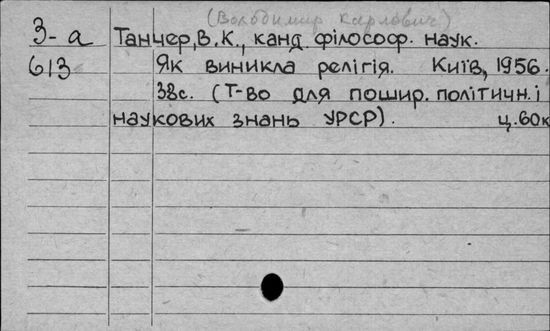 (Володимир Карлович)
З-а Танчер, В.К., канд. філософ. наук.
613 Як виникла релігія. Київ, 1956.
38с. (Т-во для пошир. політичн. і
наукових знань УРСР). ц.60к